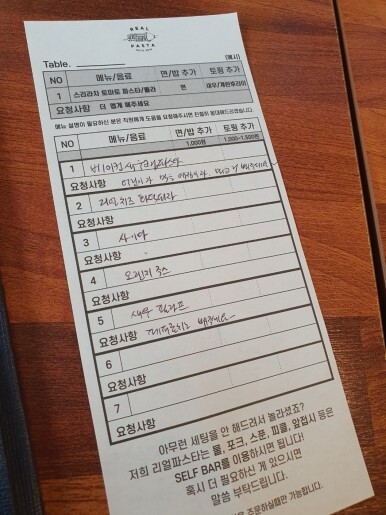 REAL
PASTA
Table.
(예시)
NO 메뉴/음료 면/밥 추가 토핑 추가
1 스리라차 토마토 파스타/콜라 면 새우/계란후라이
요청사항 더 맵게 해주세요
메뉴 설명이 필요하신 분은 직원에게 도움을 요청해주시면 친절히 응대해드리겠습니다.
NO 메뉴/음료 면/밥 추가 토핑 추가
1,000원 1,000~1,500원
1 베이컨
요청사항 빼주세요
2 치즈
요청사항
3 사이다
요청사항
4 오렌지 주스
요청사항
5 새우 필라프
요청사항 빼주세요
6
요청사항
7
요청사항
아무런 세팅을 안 해드려서 놀라셨죠?
저희 리얼파스타는 물, 포크, 스푼, 피클, 앞접시 등은
SELF BAR를 이용하시면 됩니다!
혹시 더 필요하신 게 있으시면
말씀 부탁드립니다.
주문하실때만 가능합니다.